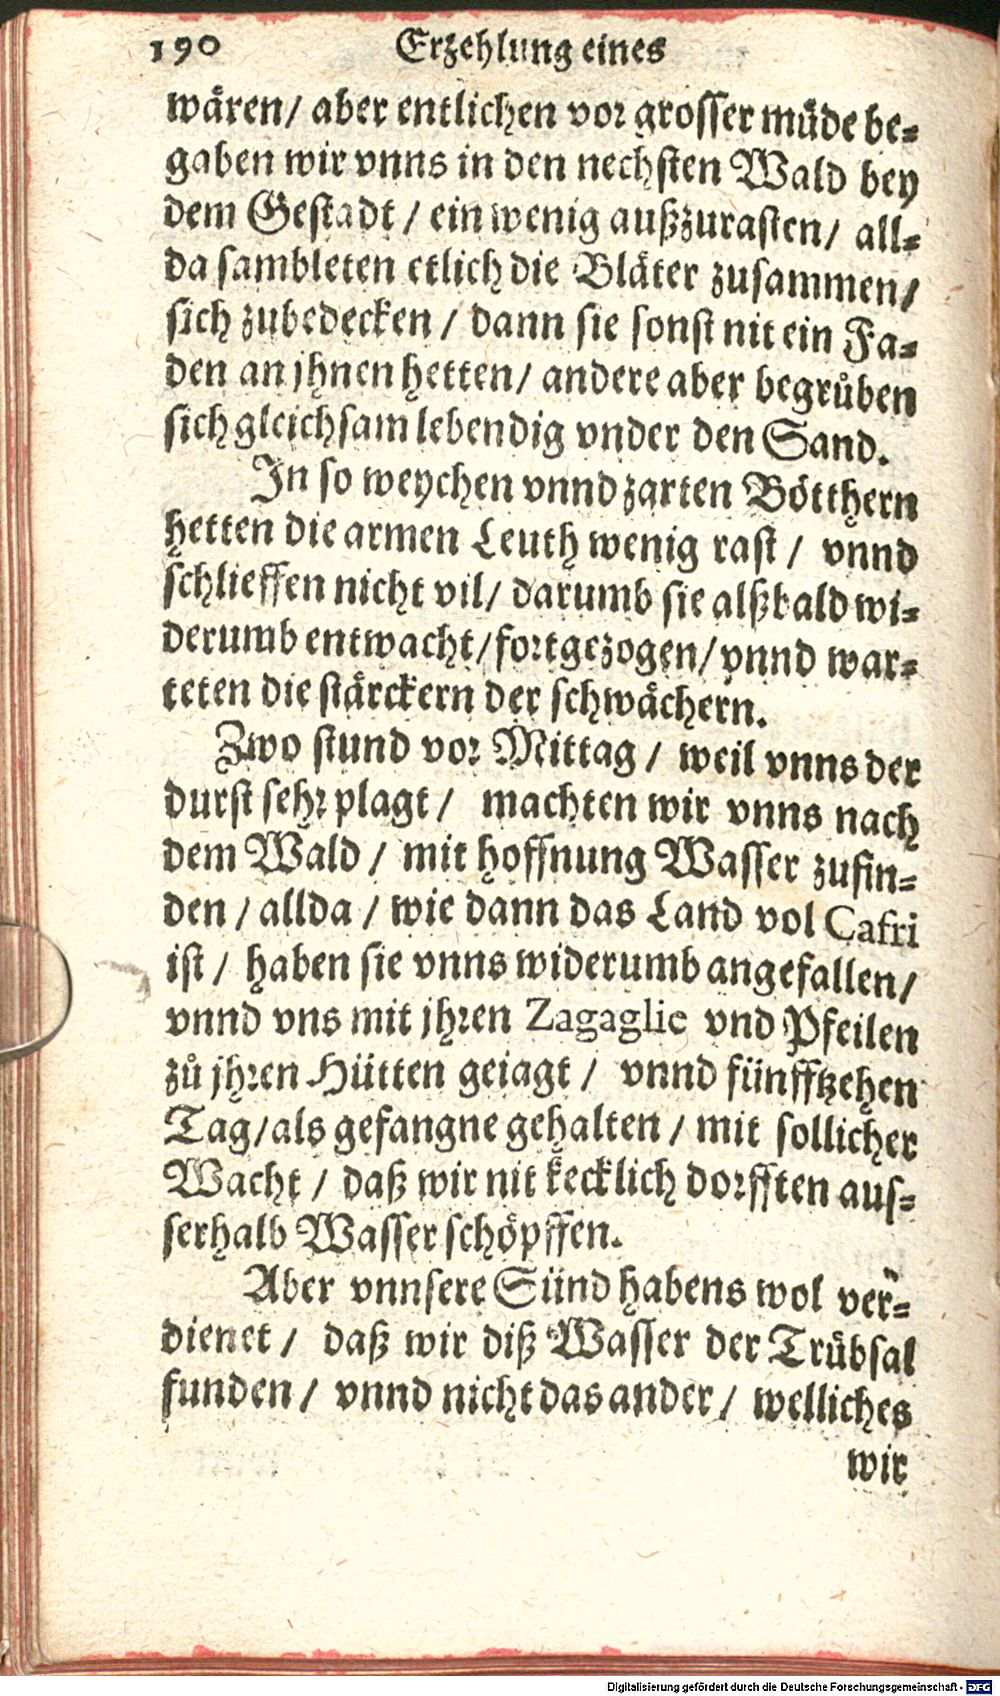 190 Erzehlung eines
wären/ aber entlichen vor grosser müde be-
gaben wir vnns in den nechsten Wald bey
dem Gestadt / ein wenig außzurasten/ all-
da sambleten etlich die Bläter zusammen/
sich zubedecken / dann sie sonst nit ein Fa-
den an jhnen hetten/ andere aber begrůben
sich gleichsam lebendig vnder den Sand.
In so weychen vnnd zarten Bötthern
hetten die armen Leuth wenig rast / vnnd
schlieffen nicht vil/ darumb sie alßbald wi-
derumb entwacht/ fortgezogen/ vnnd war-
teten die stärckern der schwächern.
Zwo stund vor Mittag / weil vnns der
durst sehr plagt / machten wir vnns nach
dem Wald / mit hoffnung Wasser zufin-
den / allda / wie dann das Land vol Cafri
ist / haben sie vnns widerumb angefallen/
vnnd vns mit jhren Zagaglie vnd Pfeilen
zů jhren Hütten geiagt / vnnd fünfftzehen
Tag/als gefangne gehalten / mit sollicher
Wacht / daß wir nit kecklich dorfften aus-
serhalb Wasser schöpffen.
Aber vnnsere Sünd habens wol ver-
dienet / daß wir diß Wasser der Trübsal
funden / vnnd nicht das ander / welliches
wir
Digitalisierung gefördert durch die Deutsche Forschungsgemeinschaft - DFG